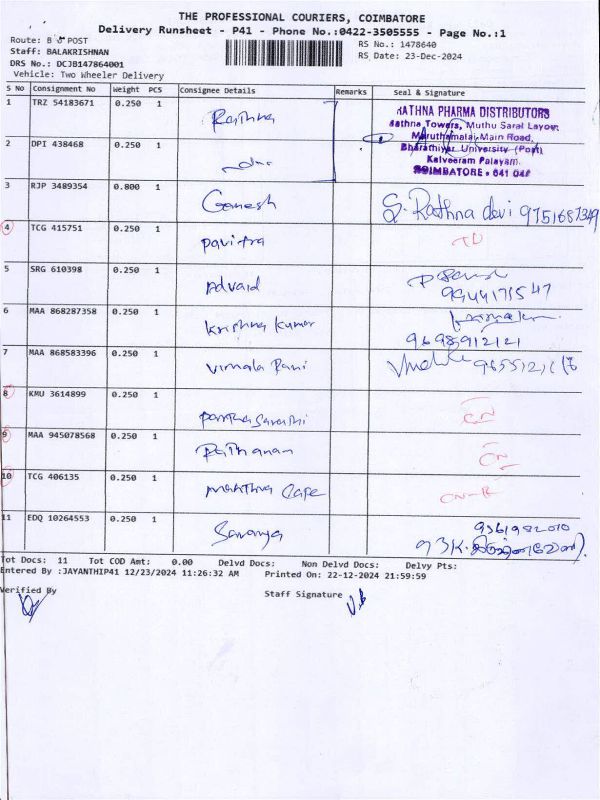 THE PROFESSIONAL COURIERS, COIMBATORE
Delivery Runsheet - P41 - Phone No.:0422-3505555 - Page No.:1
Route: B 5 POST
RS No.: 1478640
Staff: BALAKRISHNAN
RS Date: 23-Dec-2024
DRS No.: DCJB147864001
Vehicle: Two Wheeler Delivery
S No Consignment No Weight PCS Consignee Details Remarks Seal & Signature
1 TRZ 54183671 0.250 1 Rathna
RATHNA PHARMA DISTRIBUTORS
Rathna Towers, Muthu Sarai Layout
Maruthamalai Main Road,
Bharathiyar University (Post)
Kalveeram Palayam
COIMBATORE - 641 046
2 DPI 438468 0.250 1
3 RJP 3489354 0.800 1 Ganesh S. Rathna devi 9751687349
4 TCG 415751 0.250 1 Pavitra TD
5 SRG 610398 0.250 1 Advaid
9944175547
6 MAA 868287358 0.250 1 Krishna Kumar
9698912121
7 MAA 868583396 0.250 1 Vimala Rani
8 KMU 3614899 0.250 1 Parthasarathi CN
9 MAA 945078568 0.250 1 CN
10 TCG 406135 0.250 1 CN-R
11 EDQ 10264553 0.250 1 Saranya
Tot Docs: 11 Tot COD Amt: 0.00 Delvd Docs: Non Delvd Docs: Delvy Pts:
Entered By :JAYANTHIP41 12/23/2024 11:26:32 AM Printed On: 22-12-2024 21:59:59
Verified By
Staff Signature